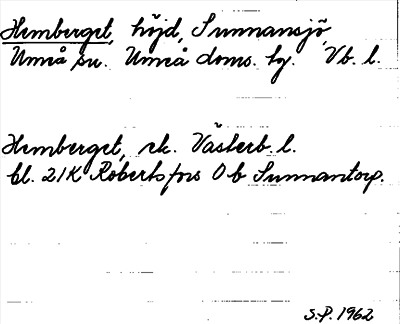 Hemberget, höjd, Sunnansjö,
Umeå sn. Umeå doms. hg. Vb. l.
Hemberget, ek. Västerb. l.
bl. 21K Robertsfors Ob Sunnantorp.
S.P. 1962